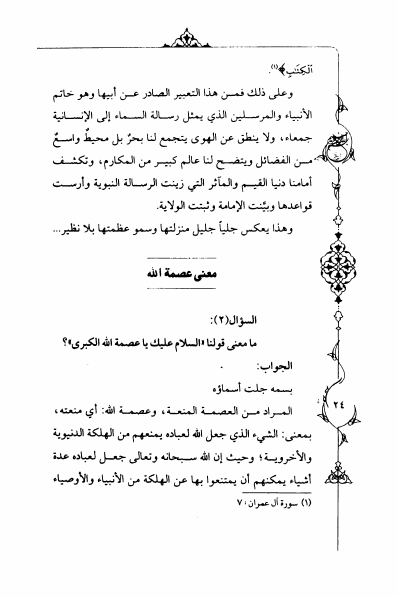 الكِتَابِ﴾(١).
وعلى ذلك فمـن هذا التعبير الصادر عن أبيها وهو خاتم
الأنبياء والمرسلين الذي يمثل رسالة السماء إلى الإنسانية
جمعاء، ولا ينطق عن الهوى يتجمع لنا بحرٌ بل محيطٌ واسعٌ
مـن الفضائل ويتضح لنا عالم كبير من المكارم، وتكشف
أمامنا دنيا القيم والمآثر التي زينت الرسالة النبوية وأرست
قواعدها وبيّنت الإمامة وثبتت الولاية.
وهذا يعكس جلياً جليل منزلتها وسمو عظمتها بلا نظير...
معنى عصمة الله
السؤال(٢):
ما معنى قولنا «السلام عليك يا عصمة الله الكبرى»؟
الجواب:
بسمه جلت أسماؤه
المراد مـن العصمة المنعة، وعصمة الله: أي منعته،
بمعنى: الشيء الذي جعل الله لعباده يمنعهم من الهلكة الدنيوية
والأخروية؛ وحيث إن الله سبحانه وتعالى جعل لعباده عدة
أشياء يمكنهم أن يمتنعوا بها عن الهلكة من الأنبياء والأوصياء
(١) سورة آل عمران: ٧٠
٢٤